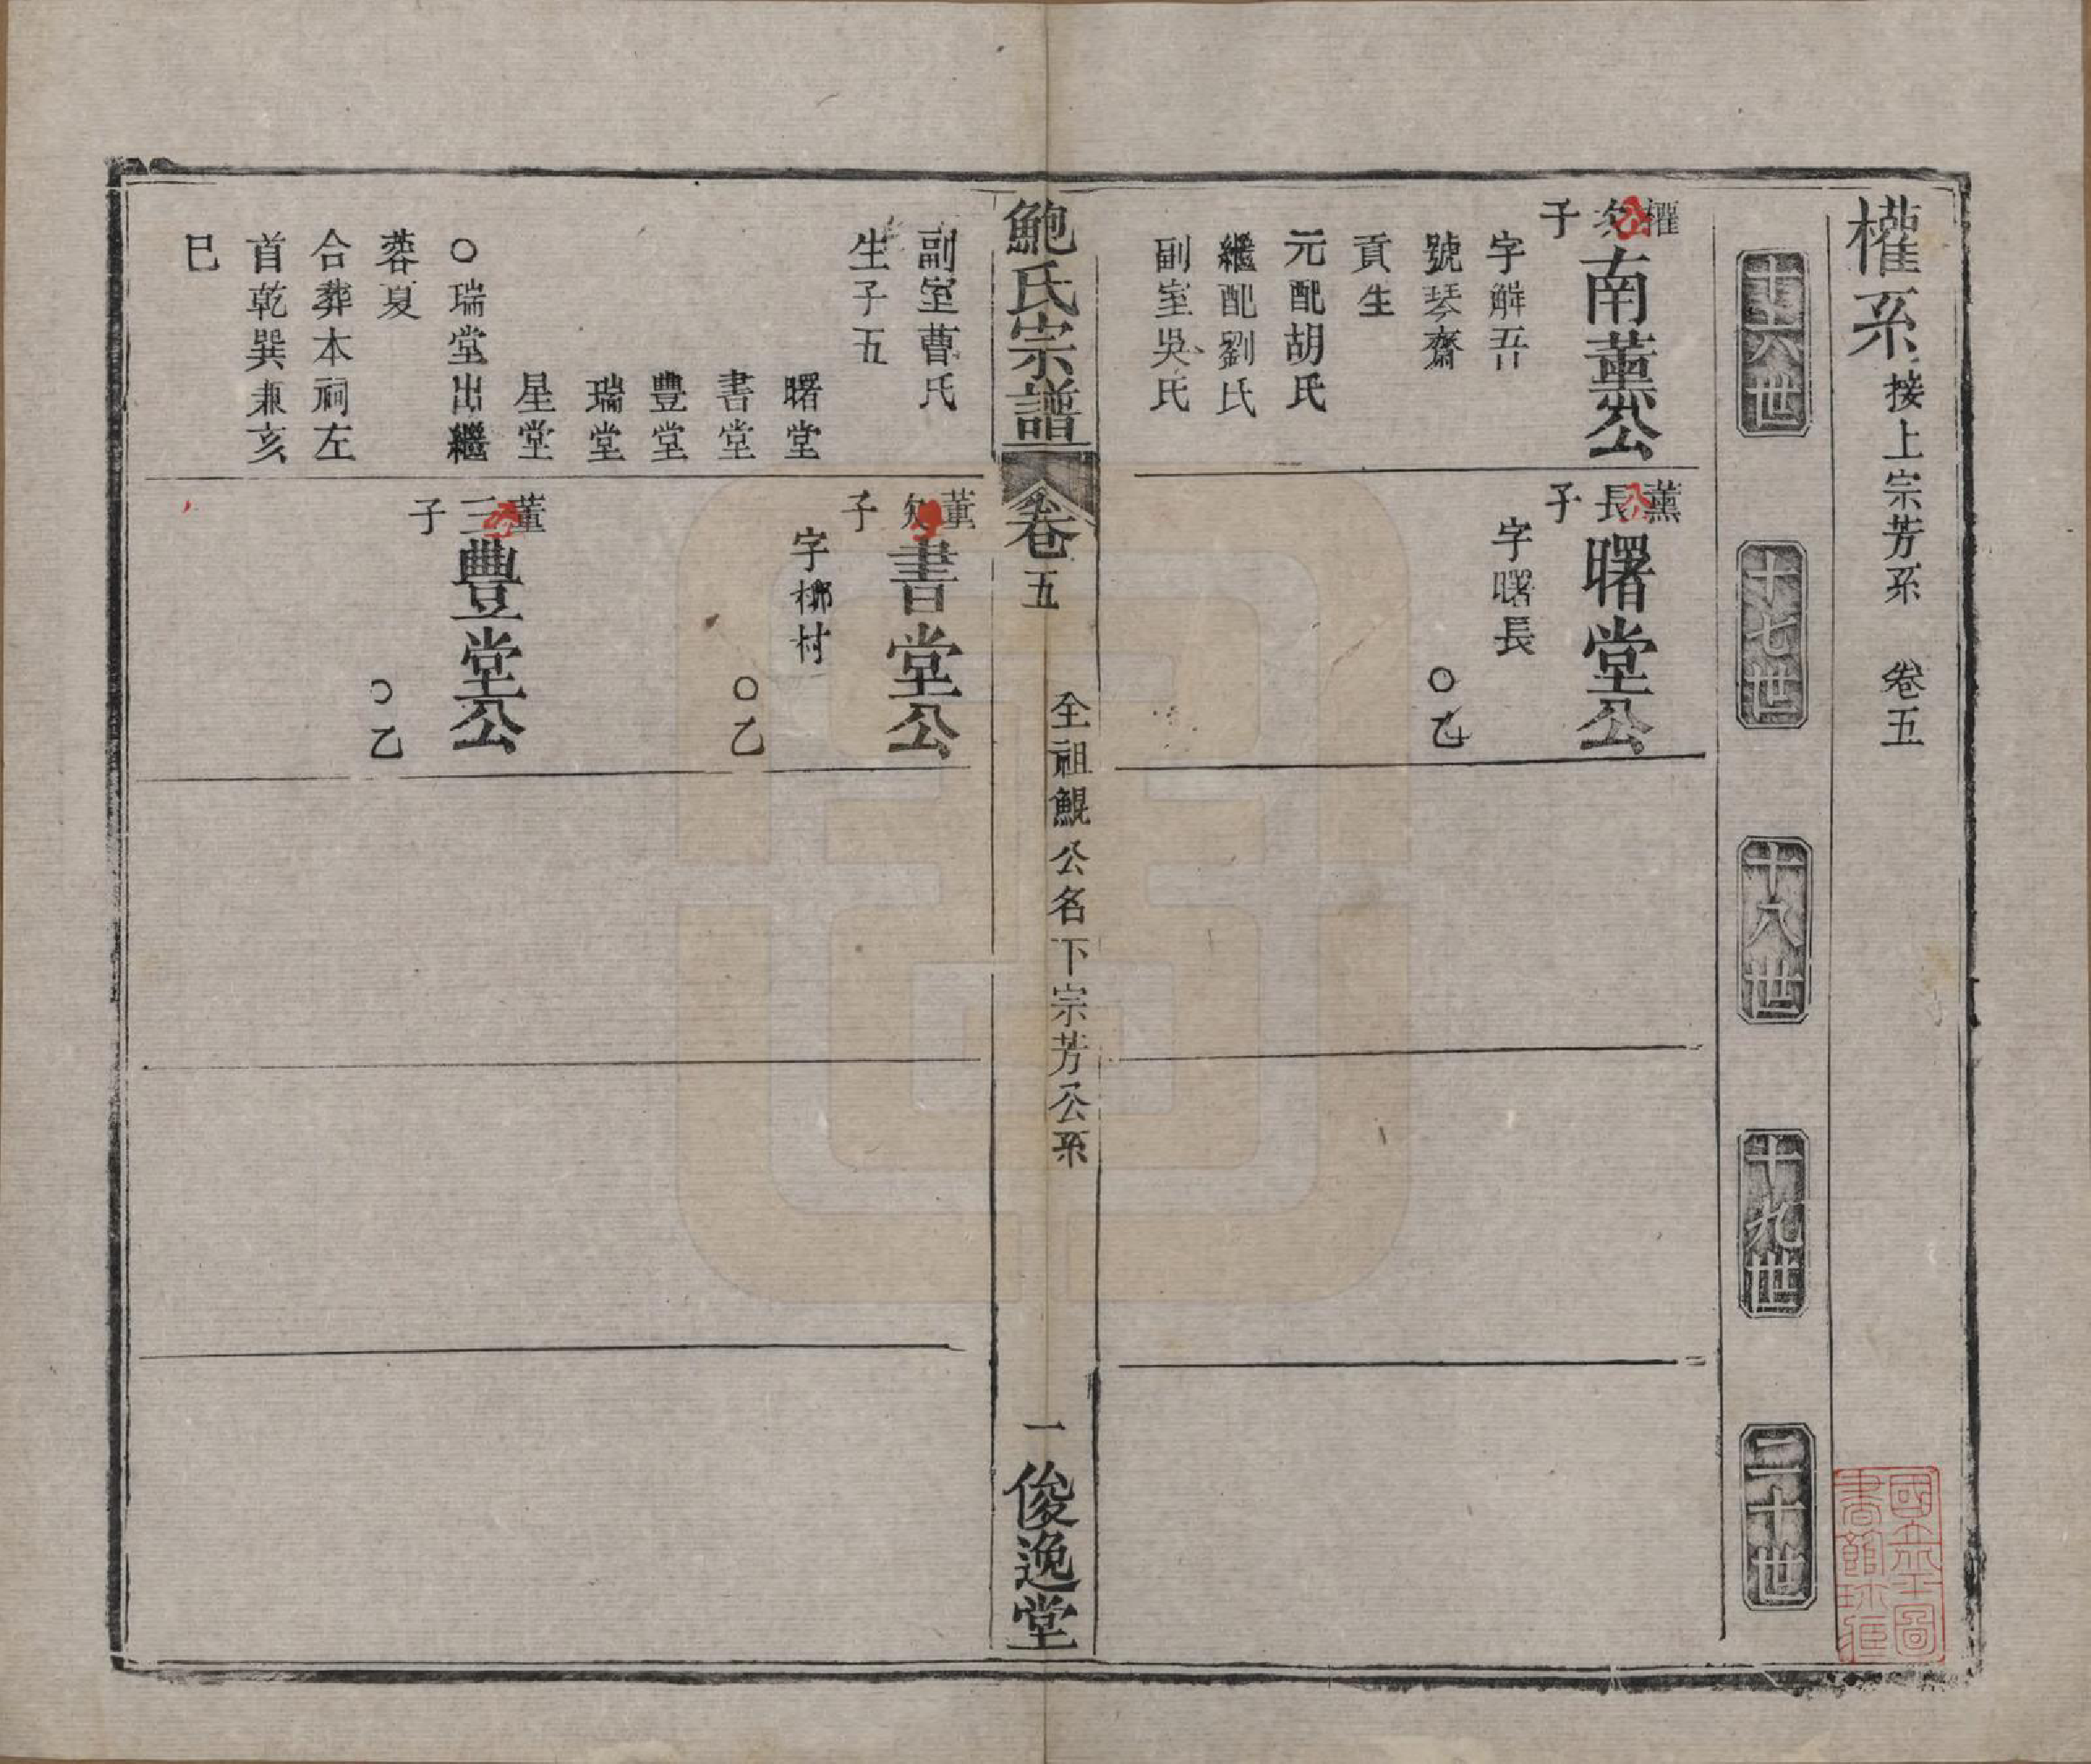 權系 接上宗芳系 卷五
十六世
十七世
十八世
十九世
二十世
權公次子
南薰公
字解吾
號琴齋
貢生
元配胡氏
繼配劉氏
副室吳氏
薰公長子
曙堂公
字曙長
○乙
鮑氏宗譜
卷五
全祖鯤公名下宗芳公系
一
俊逸堂
副室曹氏
生子五
曙堂
書堂
豐堂
瑞堂
星堂
○瑞堂出繼
蓉夏
合葬本祠左
首乾巽兼亥
巳
薰公次子
書堂公
字柳村
○乙
薰公三子
豐堂公
○乙
國立北平圖
書館珍藏